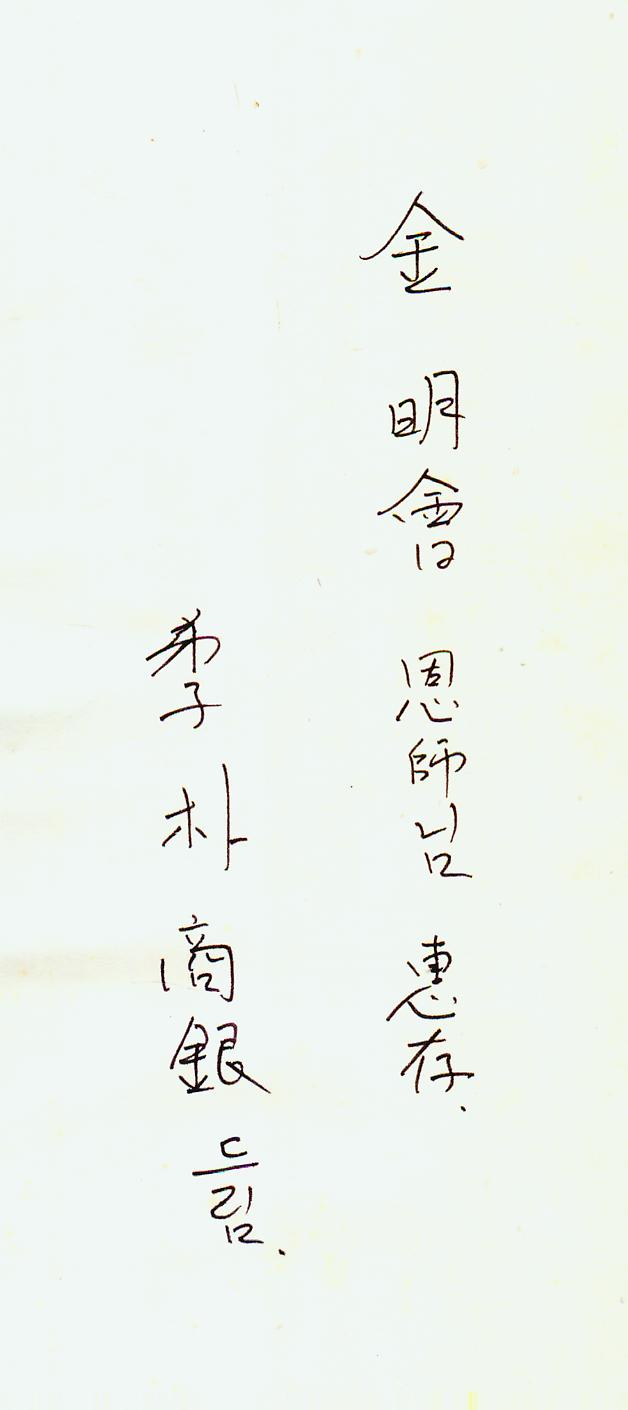 金 明會 恩師님 惠存.
弟子 朴 商銀 드림.